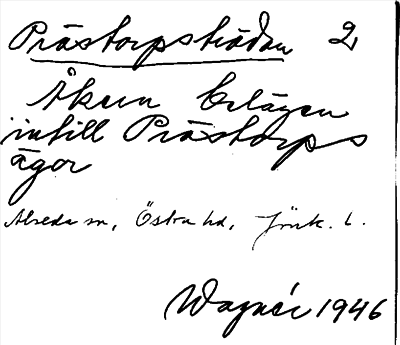 Prästorpsträdan 2
Åkern belägen
intill Prästorps
ägor
Alseda sn, Östra hd, Jönk. l.
Wagnér 1946